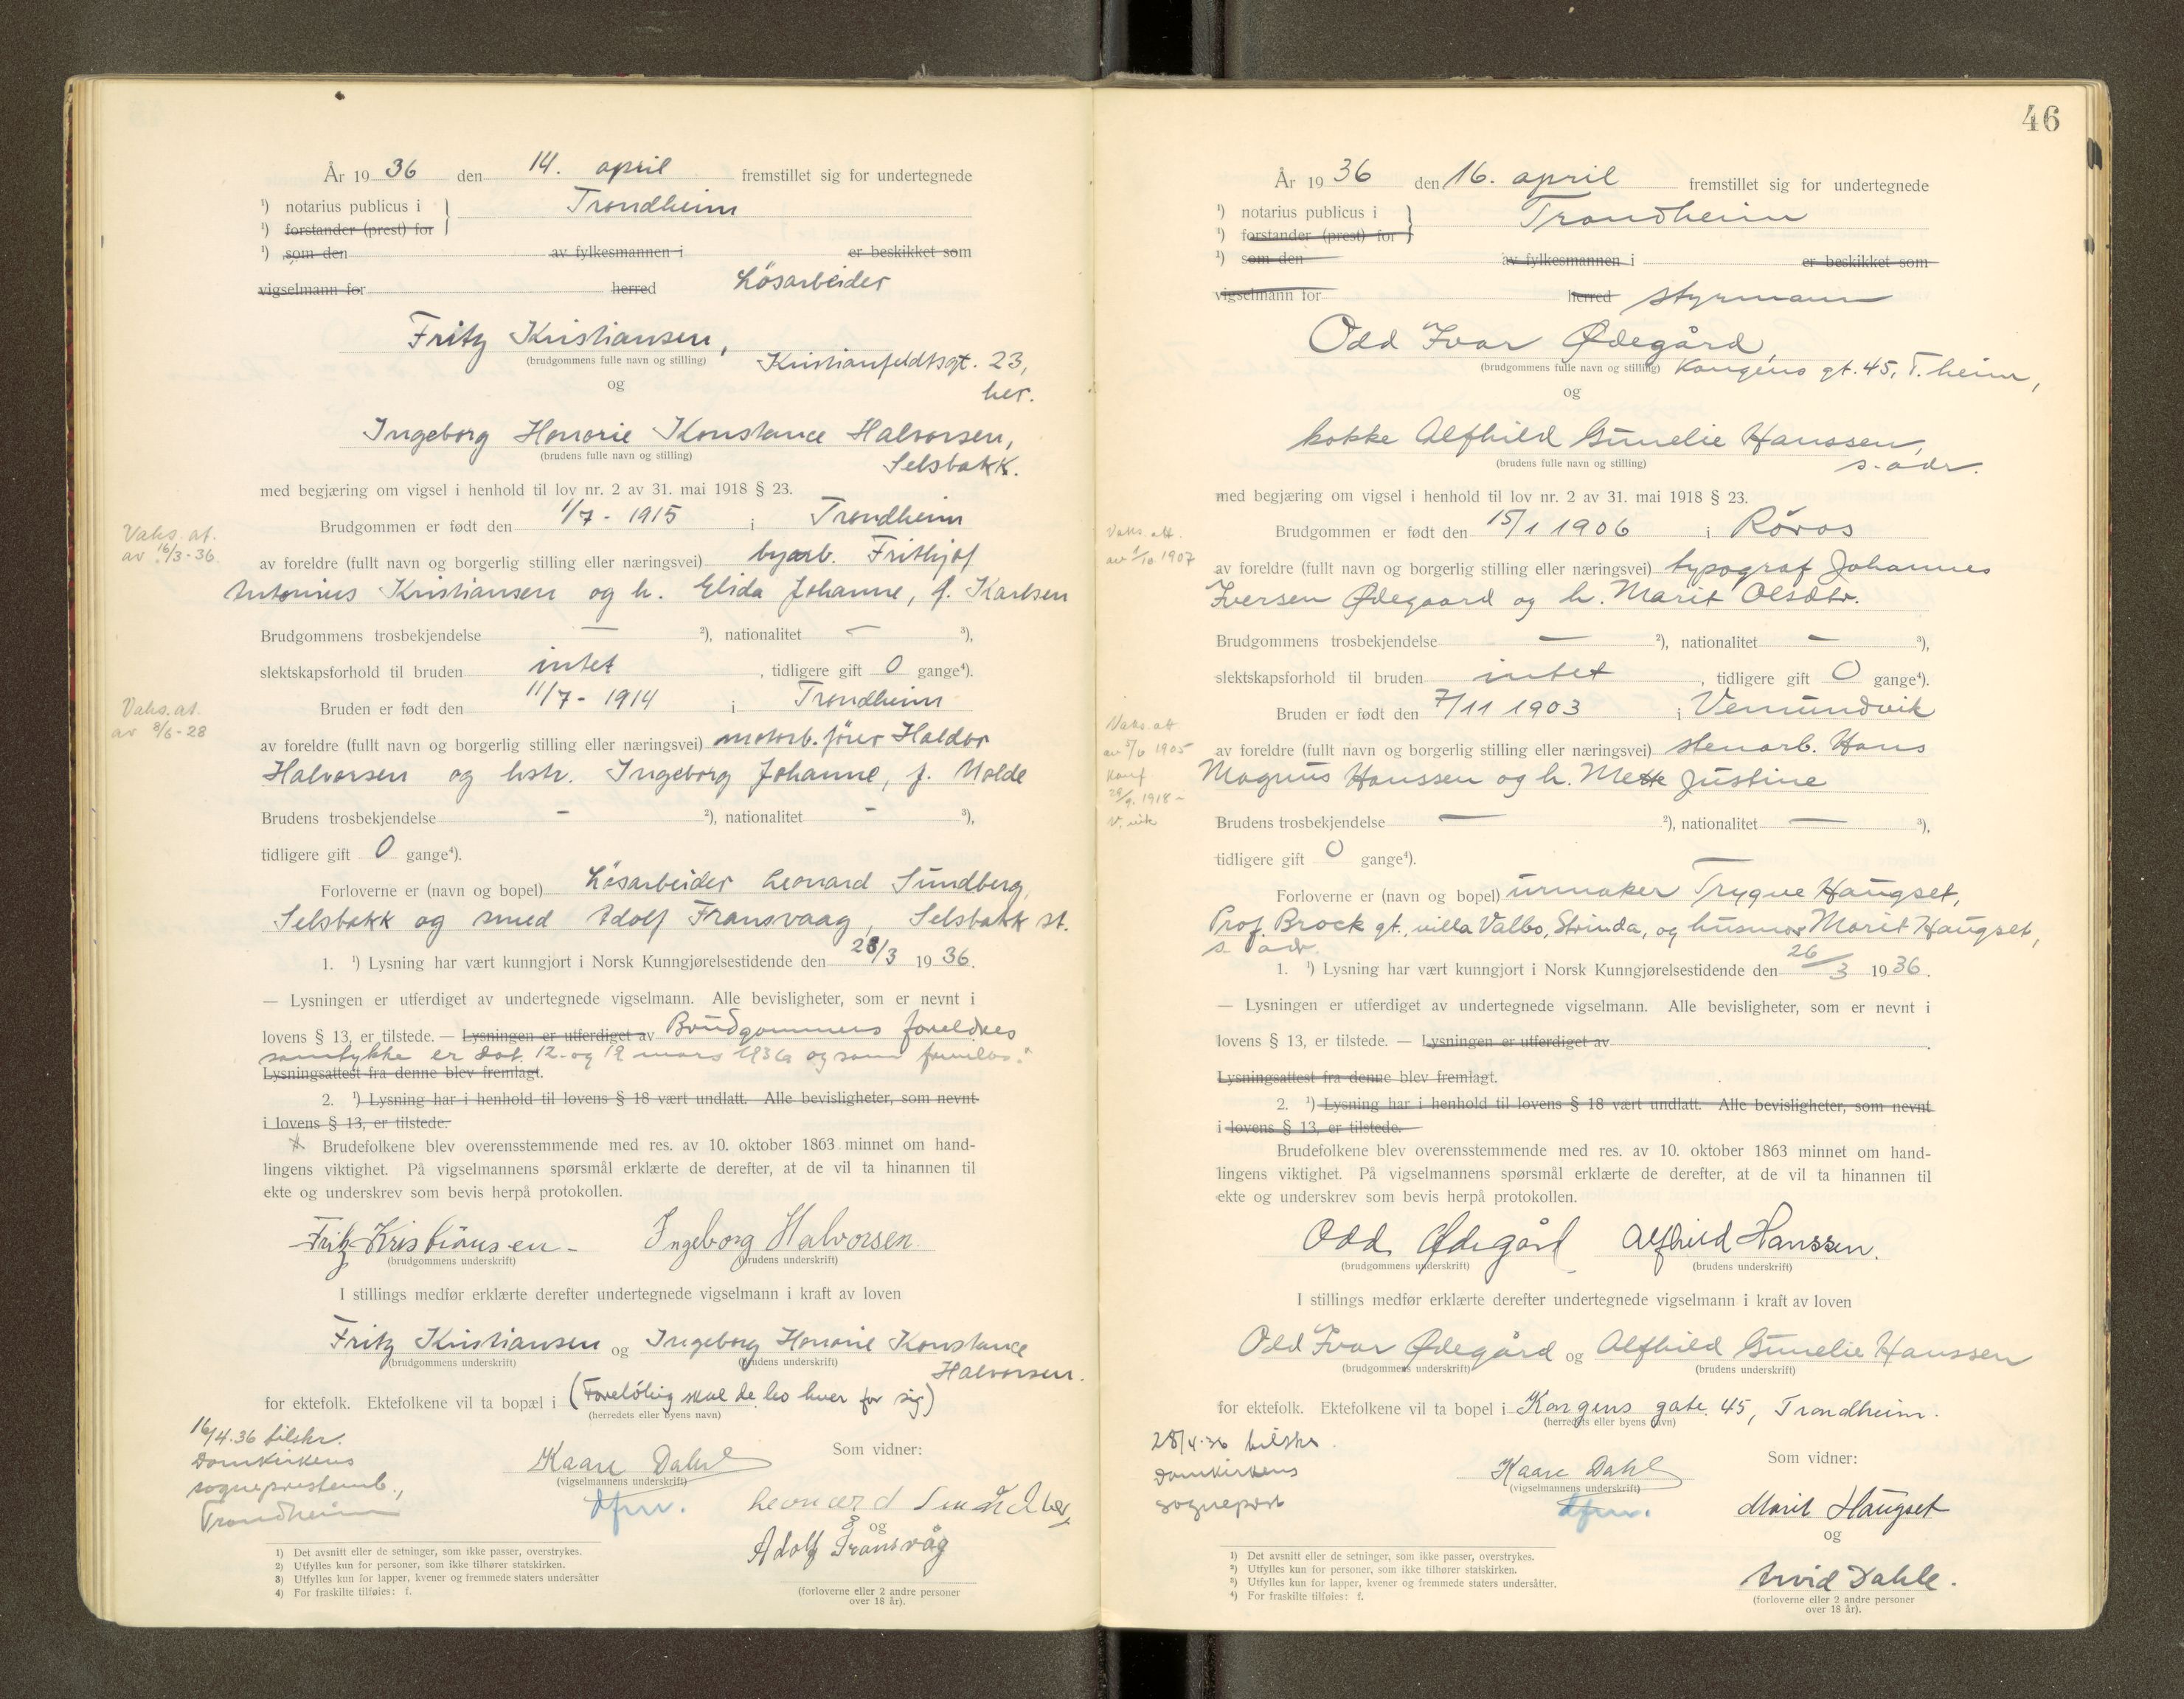 År 1936 den 14. april fremstillet sig for undertegnede
¹) notarius publicus i } Trondheim
¹) forstander (prest) for
¹) som den av fylkesmannen i er beskikket som
vigselmann for herred Lösarbeider
Fritz Kristiansen,
(brudgommens fulle navn og stilling) Kristianfeldtsgt. 23,
og her.
Ingeborg Honorie Konstance Halvorsen,
(brudens fulle navn og stilling) Selsbakk.
med begjæring om vigsel i henhold til lov nr. 2 av 31. mai 1918 § 23.
Brudgommen er født den 1/7 - 1915 i Trondheim
Vaks. at.
av 16/3-36.
av foreldre (fullt navn og borgerlig stilling eller næringsvei) byarb. Frithjof
Antonius Kristiansen og h. Elida Johanne, f. Karlsen
Brudgommens trosbekjendelse — ²), nationalitet — ³),
slektskapsforhold til bruden intet, tidligere gift 0 gange⁴).
Bruden er født den 11/7 - 1914 i Trondheim
Vaks. at.
av 8/6-28
av foreldre (fullt navn og borgerlig stilling eller næringsvei) motorb. fører Haldor
Halvorsen og hstr. Ingeborg Johanne, f. Molde
Brudens trosbekjendelse - ²), nationalitet - ³),
tidligere gift 0 gange⁴).
Forloverne er (navn og bopel) Lösarbeider Leonard Sundberg,
Selsbakk og smed Adolf Fransvaag, Selsbakk st.
1. ¹) Lysning har vært kunngjort i Norsk Kunngjørelsestidende den 28/3 1936.
— Lysningen er utferdiget av undertegnede vigselmann. Alle bevisligheter, som er nevnt i
lovens § 13, er tilstede. — Lysningen er utferdiget av Brudgommens foreldres
samtykke er dat. 12. og 19 mars 1936 og som
Lysningsattest fra denne blev fremlagt.
2. ¹) Lysning har i henhold til lovens § 18 vært undlatt. Alle bevisligheter, som nevnt
i lovens § 13, er tilstede.
Brudefolkene blev overensstemmende med res. av 10. oktober 1863 minnet om hand-
lingens viktighet. På vigselmannens spørsmål erklærte de derefter, at de vil ta hinannen til
ekte og underskrev som bevis herpå protokollen.
Fritz Kristiansen - Ingeborg Halvorsen
(brudgommens underskrift) (brudens underskrift)
I stillings medfør erklærte derefter undertegnede vigselmann i kraft av loven
Fritz Kristiansen og Ingeborg Honorie Konstance
(brudgommens underskrift) (brudens underskrift)
Halvorsen.
for ektefolk. Ektefolkene vil ta bopæl i (Foreløbig skal de bo hver for sig)
(herredets eller byens navn)
16/4.36 tilskr.
Domkirkens
sogneprestemb.,
Trondheim
Kaare Dahl
(vigselmannens underskrift)
dfm.
Som vidner:
Leonard Sundberg
og
Adolf Fransvåg
(forloverne eller 2 andre personer
over 18 år).
1) Det avsnitt eller de setninger, som ikke passer, overstrykes.
2) Utfylles kun for personer, som ikke tilhører statskirken.
3) Utfylles kun for lapper, kvener og fremmede staters undersåtter
4) For fraskilte tilføies: f.
46
År 1936 den 16. april fremstillet sig for undertegnede
¹) notarius publicus i } Trondheim
¹) forstander (prest) for
¹) som den av fylkesmannen i er beskikket som
vigselmann for herred styrmann
Odd Ivar Ødegård,
(brudgommens fulle navn og stilling) Kongens gt. 45, T.heim,
og
kokke Alfhild Gunelie Hanssen,
(brudens fulle navn og stilling) s. adr.
med begjæring om vigsel i henhold til lov nr. 2 av 31. mai 1918 § 23.
Brudgommen er født den 15/1 1906 i Röros
Vaks. att.
av 1/10 1907
av foreldre (fullt navn og borgerlig stilling eller næringsvei) typograf Johannes
Iversen Ødegaard og h. Marit Olsdtr.
Brudgommens trosbekjendelse — ²), nationalitet — ³),
slektskapsforhold til bruden intet, tidligere gift 0 gange⁴).
Bruden er født den 7/11 1903 i Vemundvik
Vaks. att
av 5/6 1905
Konf
29/9. 1918 -
V. vik
av foreldre (fullt navn og borgerlig stilling eller næringsvei) stenarb. Hans
Magnus Hanssen og h. Mette Justine
Brudens trosbekjendelse — ²), nationalitet — ³),
tidligere gift 0 gange⁴).
Forloverne er (navn og bopel) urmaker Trygve Haugset,
Prof. Brock gt., villa Valbo, Strinda, og husmor Marit Haugset,
s. adr.
1. ¹) Lysning har vært kunngjort i Norsk Kunngjørelsestidende den 26/3 1936.
— Lysningen er utferdiget av undertegnede vigselmann. Alle bevisligheter, som er nevnt i
lovens § 13, er tilstede. — Lysningen er utferdiget av
Lysningsattest fra denne blev fremlagt.
2. ¹) Lysning har i henhold til lovens § 18 vært undlatt. Alle bevisligheter, som nevnt
i lovens § 13, er tilstede.
Brudefolkene blev overensstemmende med res. av 10. oktober 1863 minnet om hand-
lingens viktighet. På vigselmannens spørsmål erklærte de derefter, at de vil ta hinannen til
ekte og underskrev som bevis herpå protokollen.
Odd Ødegård Alfhild Hanssen.
(brudgommens underskrift) (brudens underskrift)
I stillings medfør erklærte derefter undertegnede vigselmann i kraft av loven
Odd Ivar Ødegård og Alfhild Gunelie Hanssen
(brudgommens underskrift) (brudens underskrift)
for ektefolk. Ektefolkene vil ta bopel i Kongens gate 45, Trondheim.
(herredets eller byens navn)
28/4-36 tilskr.
Domkirkens
sogneprest
Kaare Dahl
(vigselmannens underskrift)
dfm.
Som vidner:
Marit Haugset
og
Arvid Dahle.
(forloverne eller 2 andre personer
over 18 år).
¹) Det avsnitt eller de setninger, som ikke passer, overstrykes.
²) Utfylles kun for personer, som ikke tilhører statskirken.
³) Utfylles kun for lapper, kvener og fremmede staters undersåtter.
⁴) For fraskilte tilføies: f.